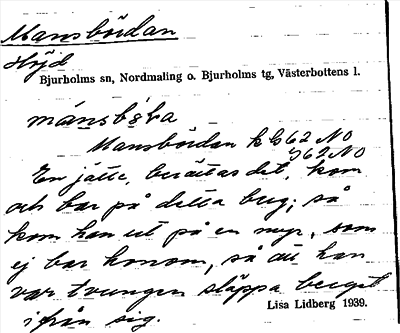 Mansbördan
Höjd
Bjurholms sn, Nordmaling o. Bjurholms tg, Västerbottens l.
Mansbördan kbl 62 NO
562 NO
En jätte, berättas det, kom
och bar på detta berg, så
kom han ut på en myr, som
ej bar honom, så att han
var tvungen släppa berget
ifrån sig.
Lisa Lidberg 1939.